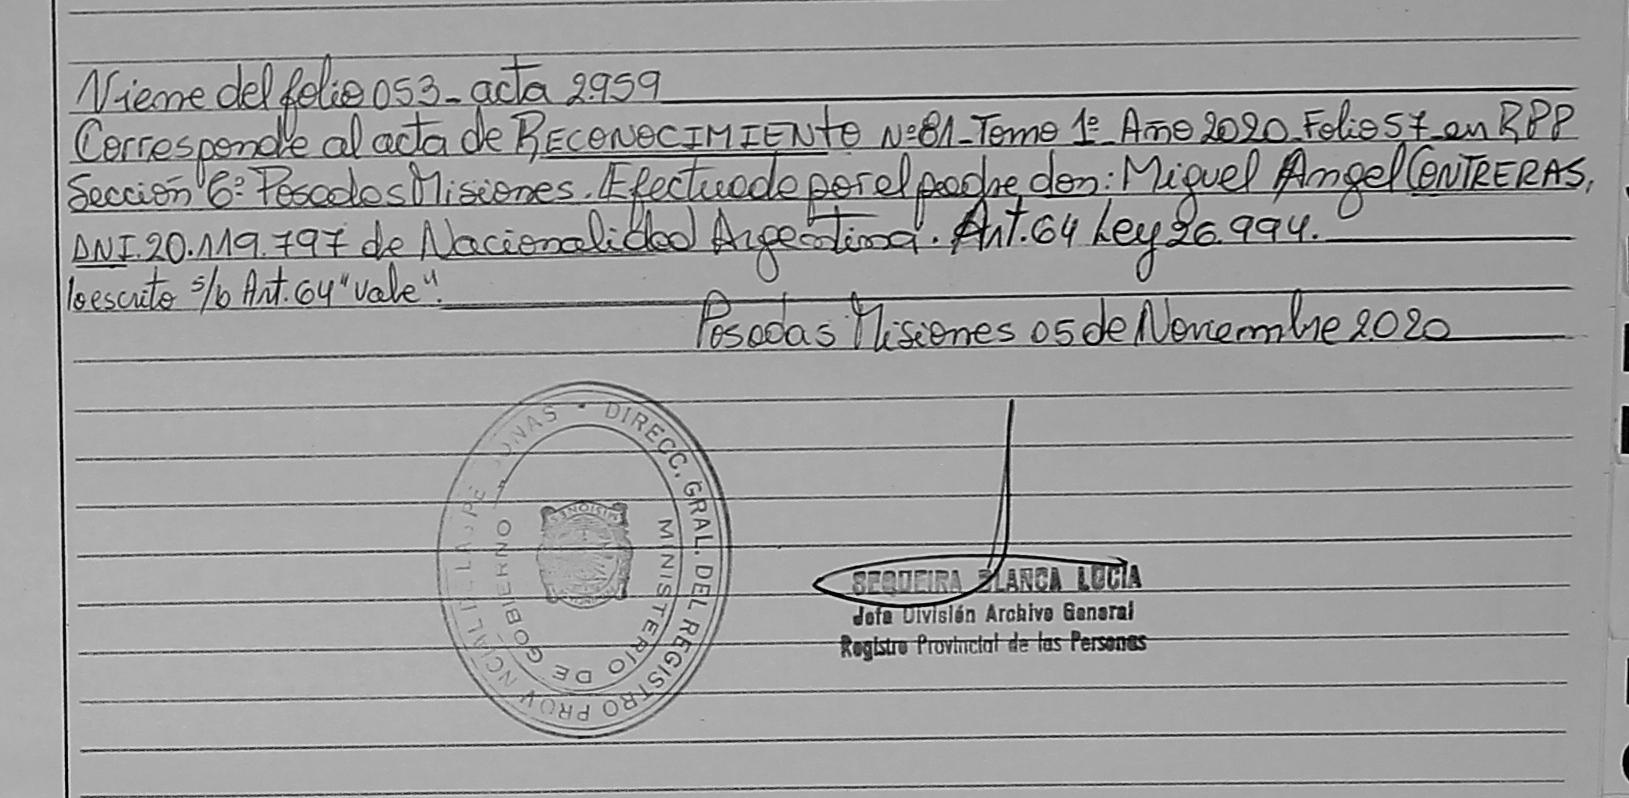 Viene del folio 053_ acta 2959
Corresponde al acta de RECONOCIMIENTO Nº81_Tomo 1º_Año 2020_Folio 57_en RPP
Sección 6º Posadas Misiones. Efectuado por el padre don: Miguel Angel CONTRERAS,
DNI.20.119.797 de Nacionalidad Argentina. Art.64 Ley 26.994.
lo escrito s/b Art.64 "vale".
Posadas Misiones 05 de Noviembre 2020
DIRECC. GRAL. DEL REGISTRO PROVINCIAL DE LAS PERSONAS
MINISTERIO DE GOBIERNO
MISIONES
SEQUEIRA BLANCA LUCIA
Jefa División Archivo General
Registro Provincial de las Personas